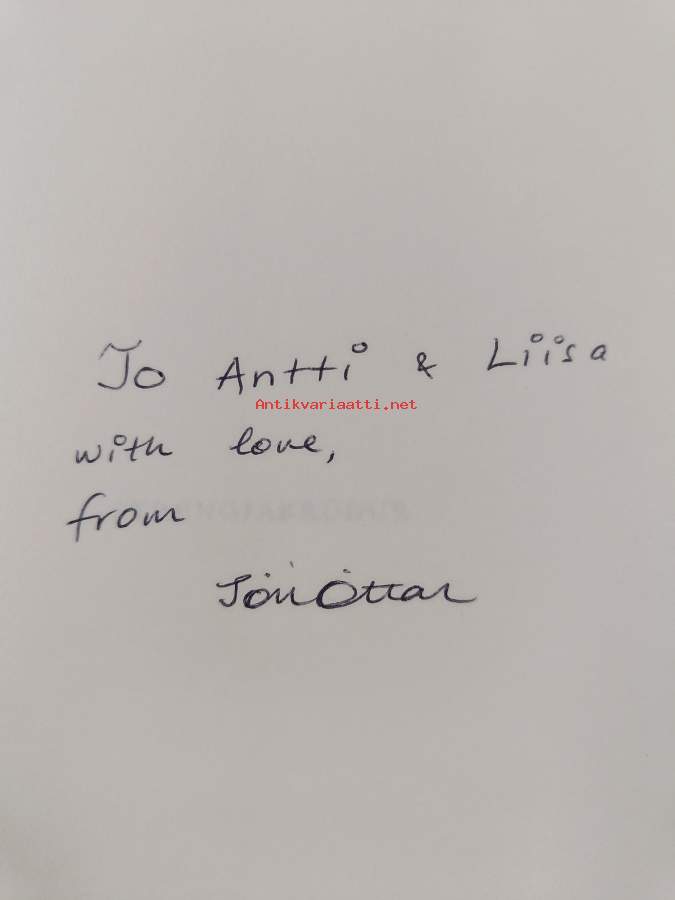 To Antti & Liisa
Antikvariaatti.net
with love,
from
Jón Óttar